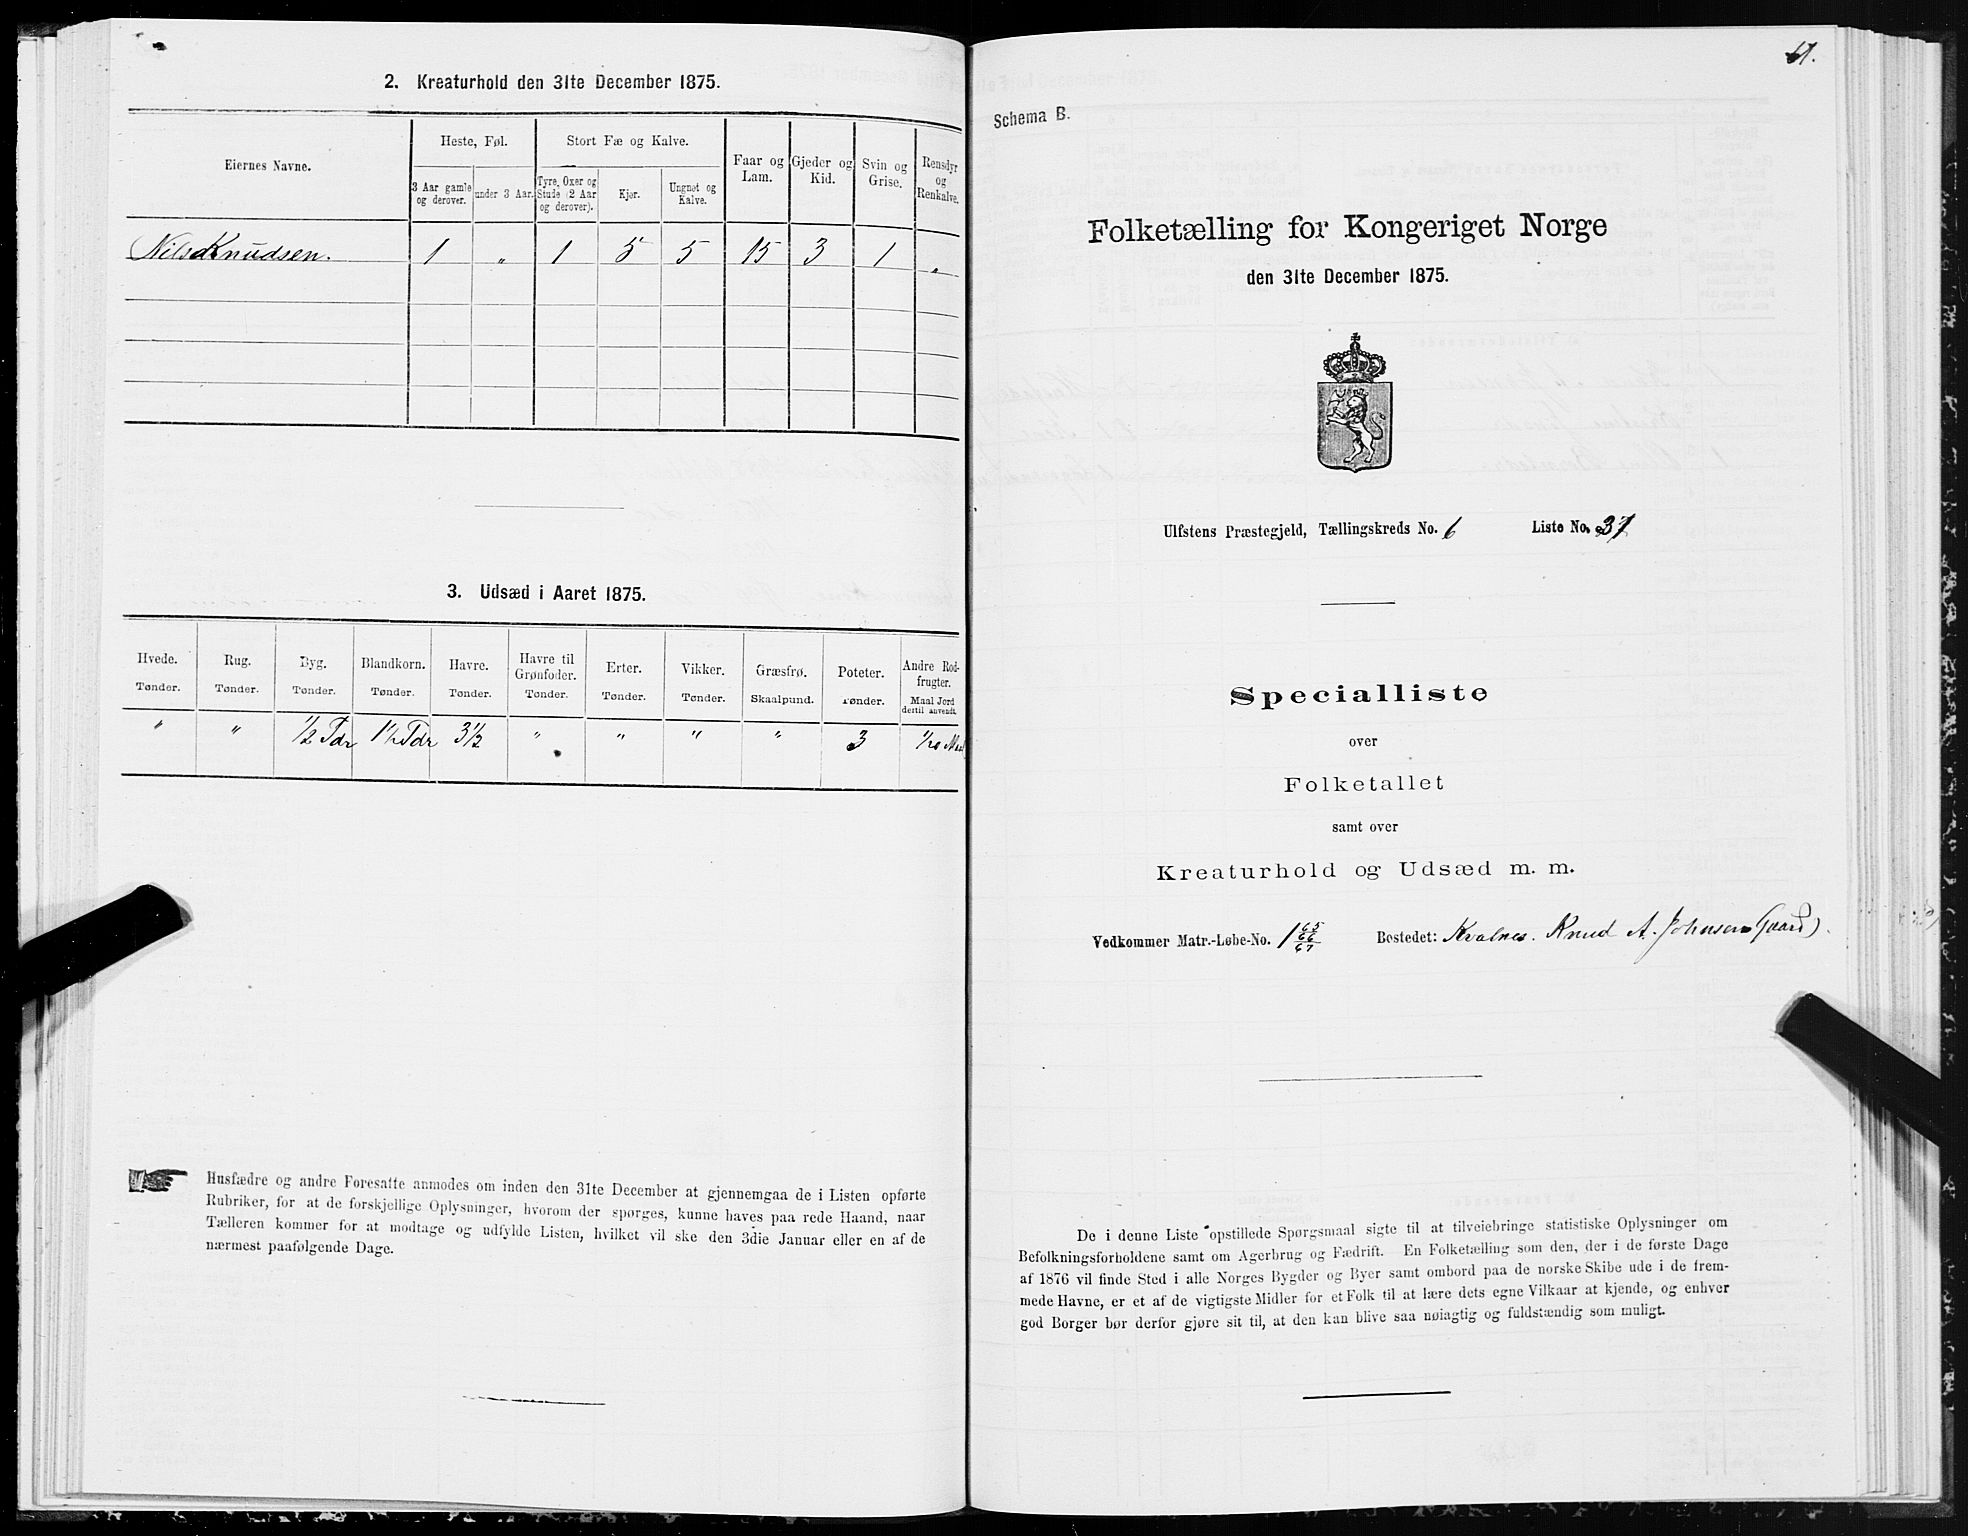 2. Kreaturhold den 31te December 1875.
Eiernes Navne.
Heste, Føl.
Stort Fæ og Kalve.
Faar og Lam.
Gjeder og Kid.
Svin og Grise.
Rensdyr og Renkalve.
3 Aar gamle og derover.
under 3 Aar.
Tyre, Oxer og Stude (2 Aar og derover).
Kjør.
Ungnøt og Kalve.
Nils Knudsen. 1 " 1 5 5 15 3 1 "
3. Udsæd i Aaret 1875.
Hvede. Rug. Byg. Blandkorn. Havre. Havre til Grønfoder. Erter. Vikker. Græsfrø. Poteter. Andre Rodfrugter.
Tønder. Tønder. Tønder. Tønder. Tønder. Tønder. Tønder. Tønder. Skaalpund. Tønder. Maal Jord dertil anvendt.
" " 1/2 Tdr 1 1/2 Tdr 3 1/2 " " " " 3 1/20 Maal
Husfædre og andre Foresatte anmodes om inden den 31te December at gjennemgaa de i Listen opførte
Rubriker, for at de forskjellige Oplysninger, hvorom der spørges, kunne haves paa rede Haand, naar
Tælleren kommer for at modtage og udfylde Listen, hvilket vil ske den 3die Januar eller en af de
nærmest paafølgende Dage.
Schema B.
Folketælling for Kongeriget Norge
den 31te December 1875.
Ulfstens Præstegjeld, Tællingskreds No. 6 Liste No. 37
Specialliste
over
Folketallet
samt over
Kreaturhold og Udsæd m. m.
Vedkommer Matr.-Løbe-No. 1 65 66 67 Bostedet: Kvalnes. Knud A. Johnsens Gaard).
De i denne Liste opstillede Spørgsmaal sigte til at tilveiebringe statistiske Oplysninger om
Befolkningsforholdene samt om Agerbrug og Fædrift. En Folketælling som den, der i de første Dage
af 1876 vil finde Sted i alle Norges Bygder og Byer samt ombord paa de norske Skibe ude i de frem-
mede Havne, er et af de vigtigste Midler for et Folk til at lære dets egne Vilkaar at kjende, og enhver
god Borger bør derfor gjøre sit til, at den kan blive saa nøiagtig og fuldstændig som muligt.